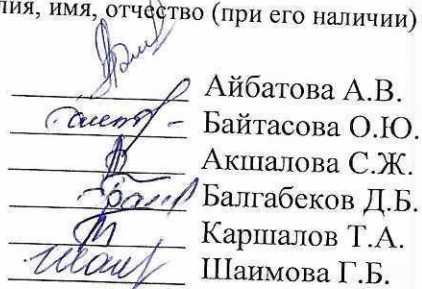 имя, отчество (при его наличии)
Айбатова А.В.
Байтасова О.Ю.
Акшалова С.Ж.
Балгабеков Д.Б.
Каршалов Т.А.
Шаимова Г.Б.